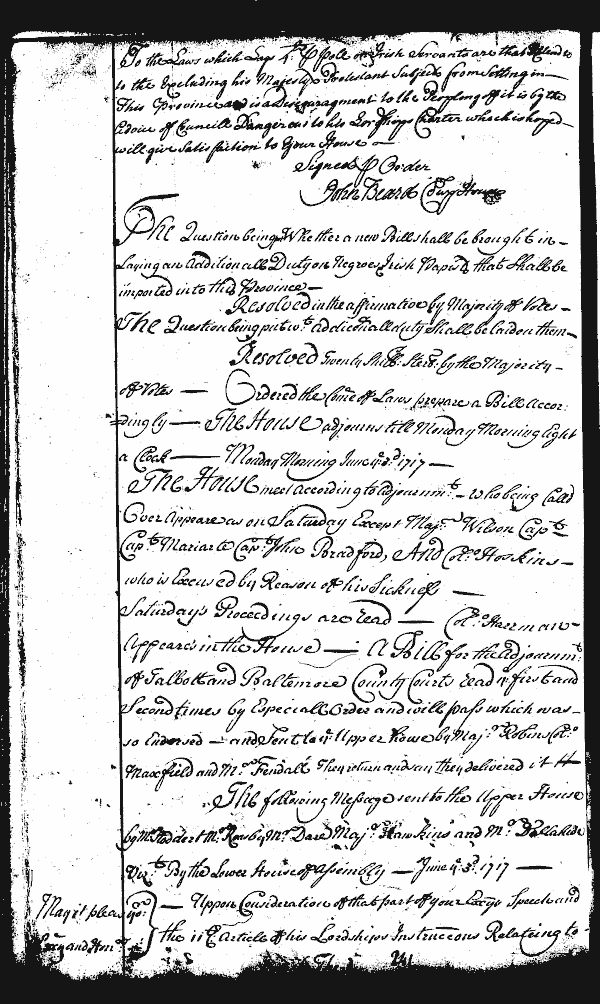 To the Laws which Lays £ ꝑ Pole on Irish Servants are that tends
to the Excluding his Majestys Protestant Subjects from Setling in —
This Province and is a Discouragment to the Peopleing of it is by the
Advice of Councill Dangerous to his Lordships Charter which is hoped —
will give Satisfaction to Your House —
Signed ꝑ Order
John Beard
The Question being Whether a new Bill shall be brought in —
Laying an Additionall Duty on Negroes, Irish Papists, that Shall be
imported into this Province —
Resolved in the affirmative by Majority of Votes —
The Question being put wt additionall duty shall be laid on them —
Resolved Twenty Shill: Sterl: by the Majority —
of Votes — Ordered the Comee of Laws prepare a Bill accor:
dingly — The House adjourns till Monday Morning Eight
a Clock — Monday Morning June ye 3d 1717 —
The House meet according to adjournmt — who being Calld
Over Appeare as on Saturday Except Majr Wilson Capt
Capt Mariarte Capt John Bradford, And Colo Hoskins —
who is Excused by Reason of his Sickness —
Saturday's Proceedings are read — Colo Hareman —
Appears in the House — A Bill for the adjournmt
of Talbott and Baltemore County Courts read ye first and
Second times by Especiall Order and will pass which was —
so Endorsed — and Sent to ye Upper House by Majr Robins Colo
Maxfield and Mr Tendall They return and say they delivered it
The following Message sent to the Upper House
by Mr Stoddert Mr Rousby Mr Dare Majr Hawkins and Mr
Vizt By the Lower House of Assembly — June ye 3d 1717 —
May it please yor — Uppon Consideration of that part of your Excys Speech and
Excy and Honrs the 11th Article of his Lordships Instruccons Relateing to —
241